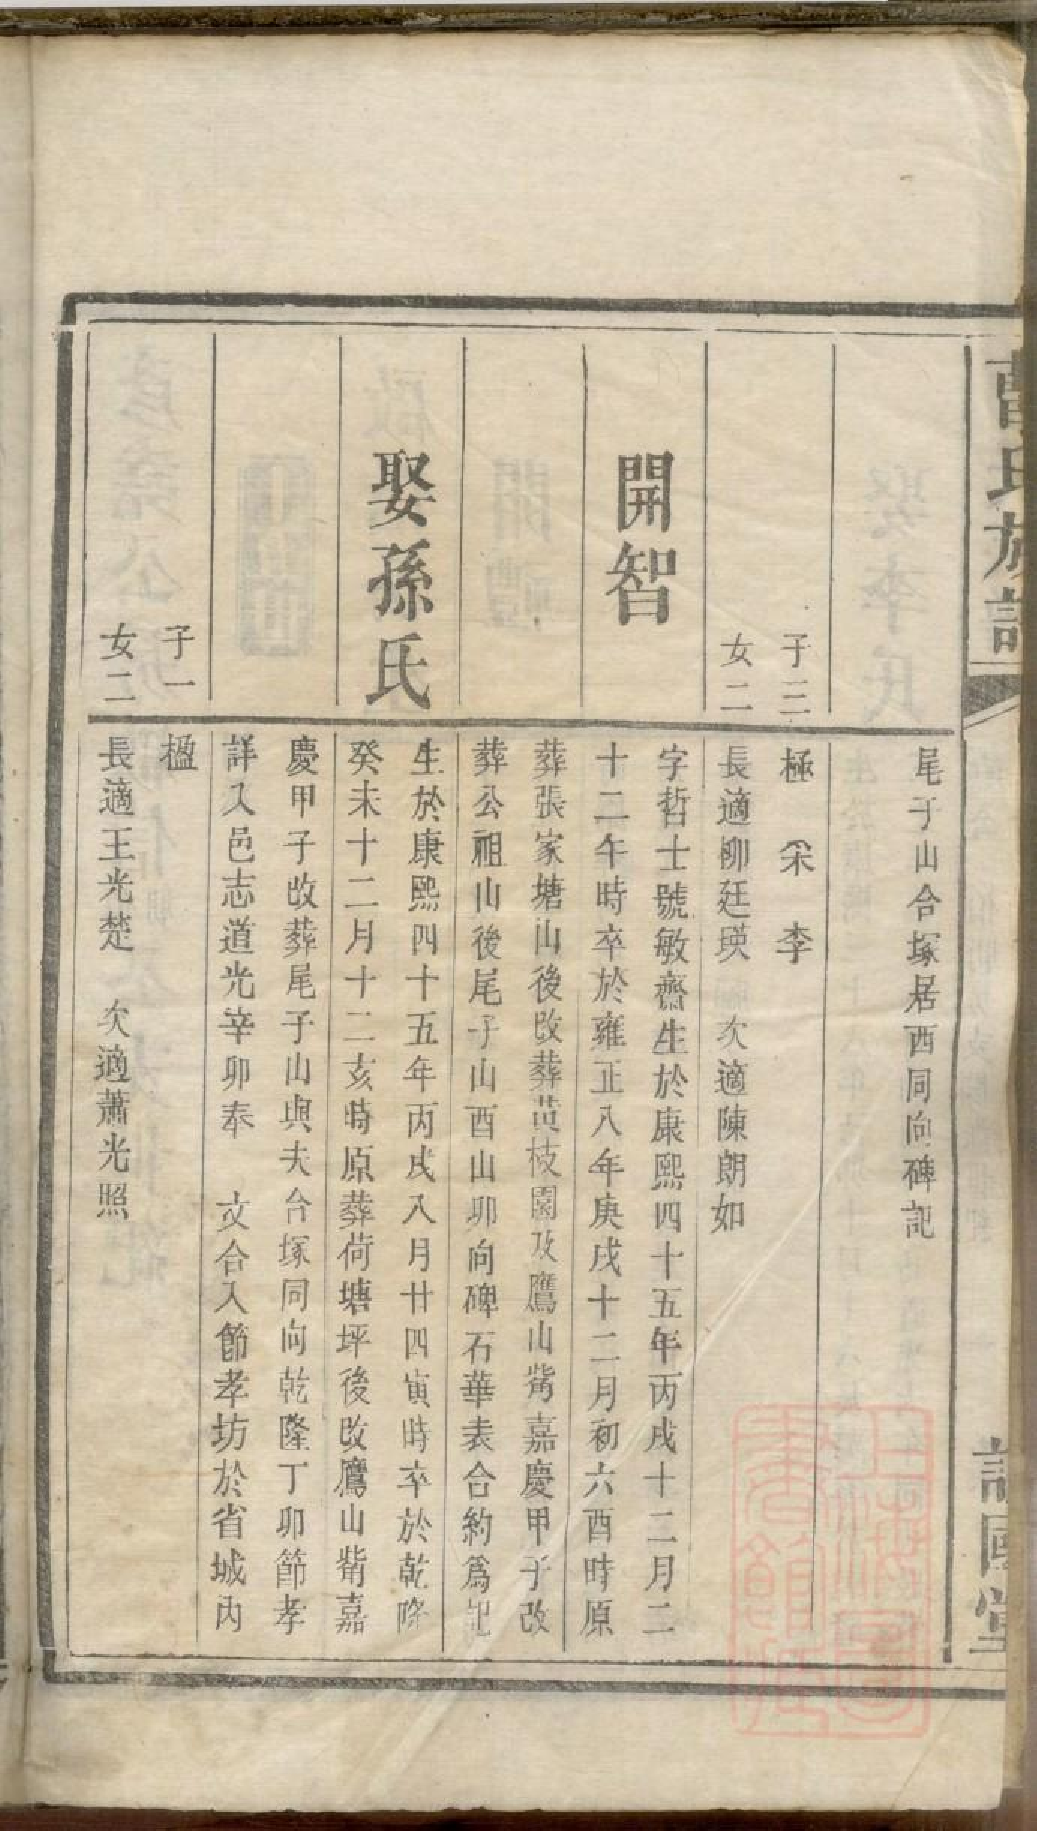 曹氏族譜
尾子山合塚居酉同向碑記
子三
極 𡩋 李
女二
長適柳廷瑛 次適陳朗如
開智
字哲士號敏齋生於康熙四十五年丙戌十二月二
十二午時卒於雍正八年庚戌十二月初六酉時原
葬張家塘山後改葬黃枝園及鷹山觜嘉慶甲子改
葬公祖山後尾子山酉山卯向碑石華表合約爲記
娶孫氏
生於康熙四十五年丙戌八月廿四寅時卒於乾隆
癸未十二月十二亥時原葬荷塘坪後改鷹山觜嘉
慶甲子改葬尾子山與夫合塚同向乾隆丁卯節孝
詳入邑志道光辛卯奉 文合入節孝坊於省城內
子一
楹
女二
長適王光楚 次適蕭光照